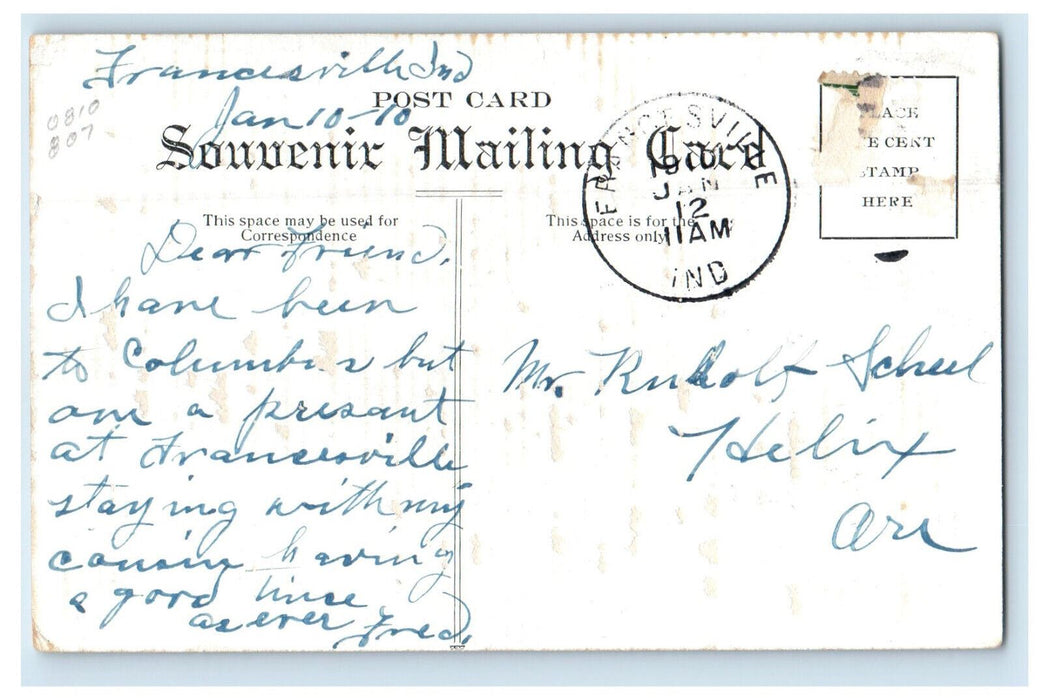 Francesville Ind
Jan 10-10
0810
807
POST CARD
Souvenir Mailing Card
This space may be used for
Correspondence
This space is for the
Address only
FRANCESVILLE
1910
JAN
12
11AM
IND
PLACE
E CENT
STAMP
HERE
Dear Friend.
I have been
to Columbus but
am a presant
at Francesville
staying with my
cousin having
a good time
as ever Fred.
Mr. Rudolf Scheel
Helix
Ore